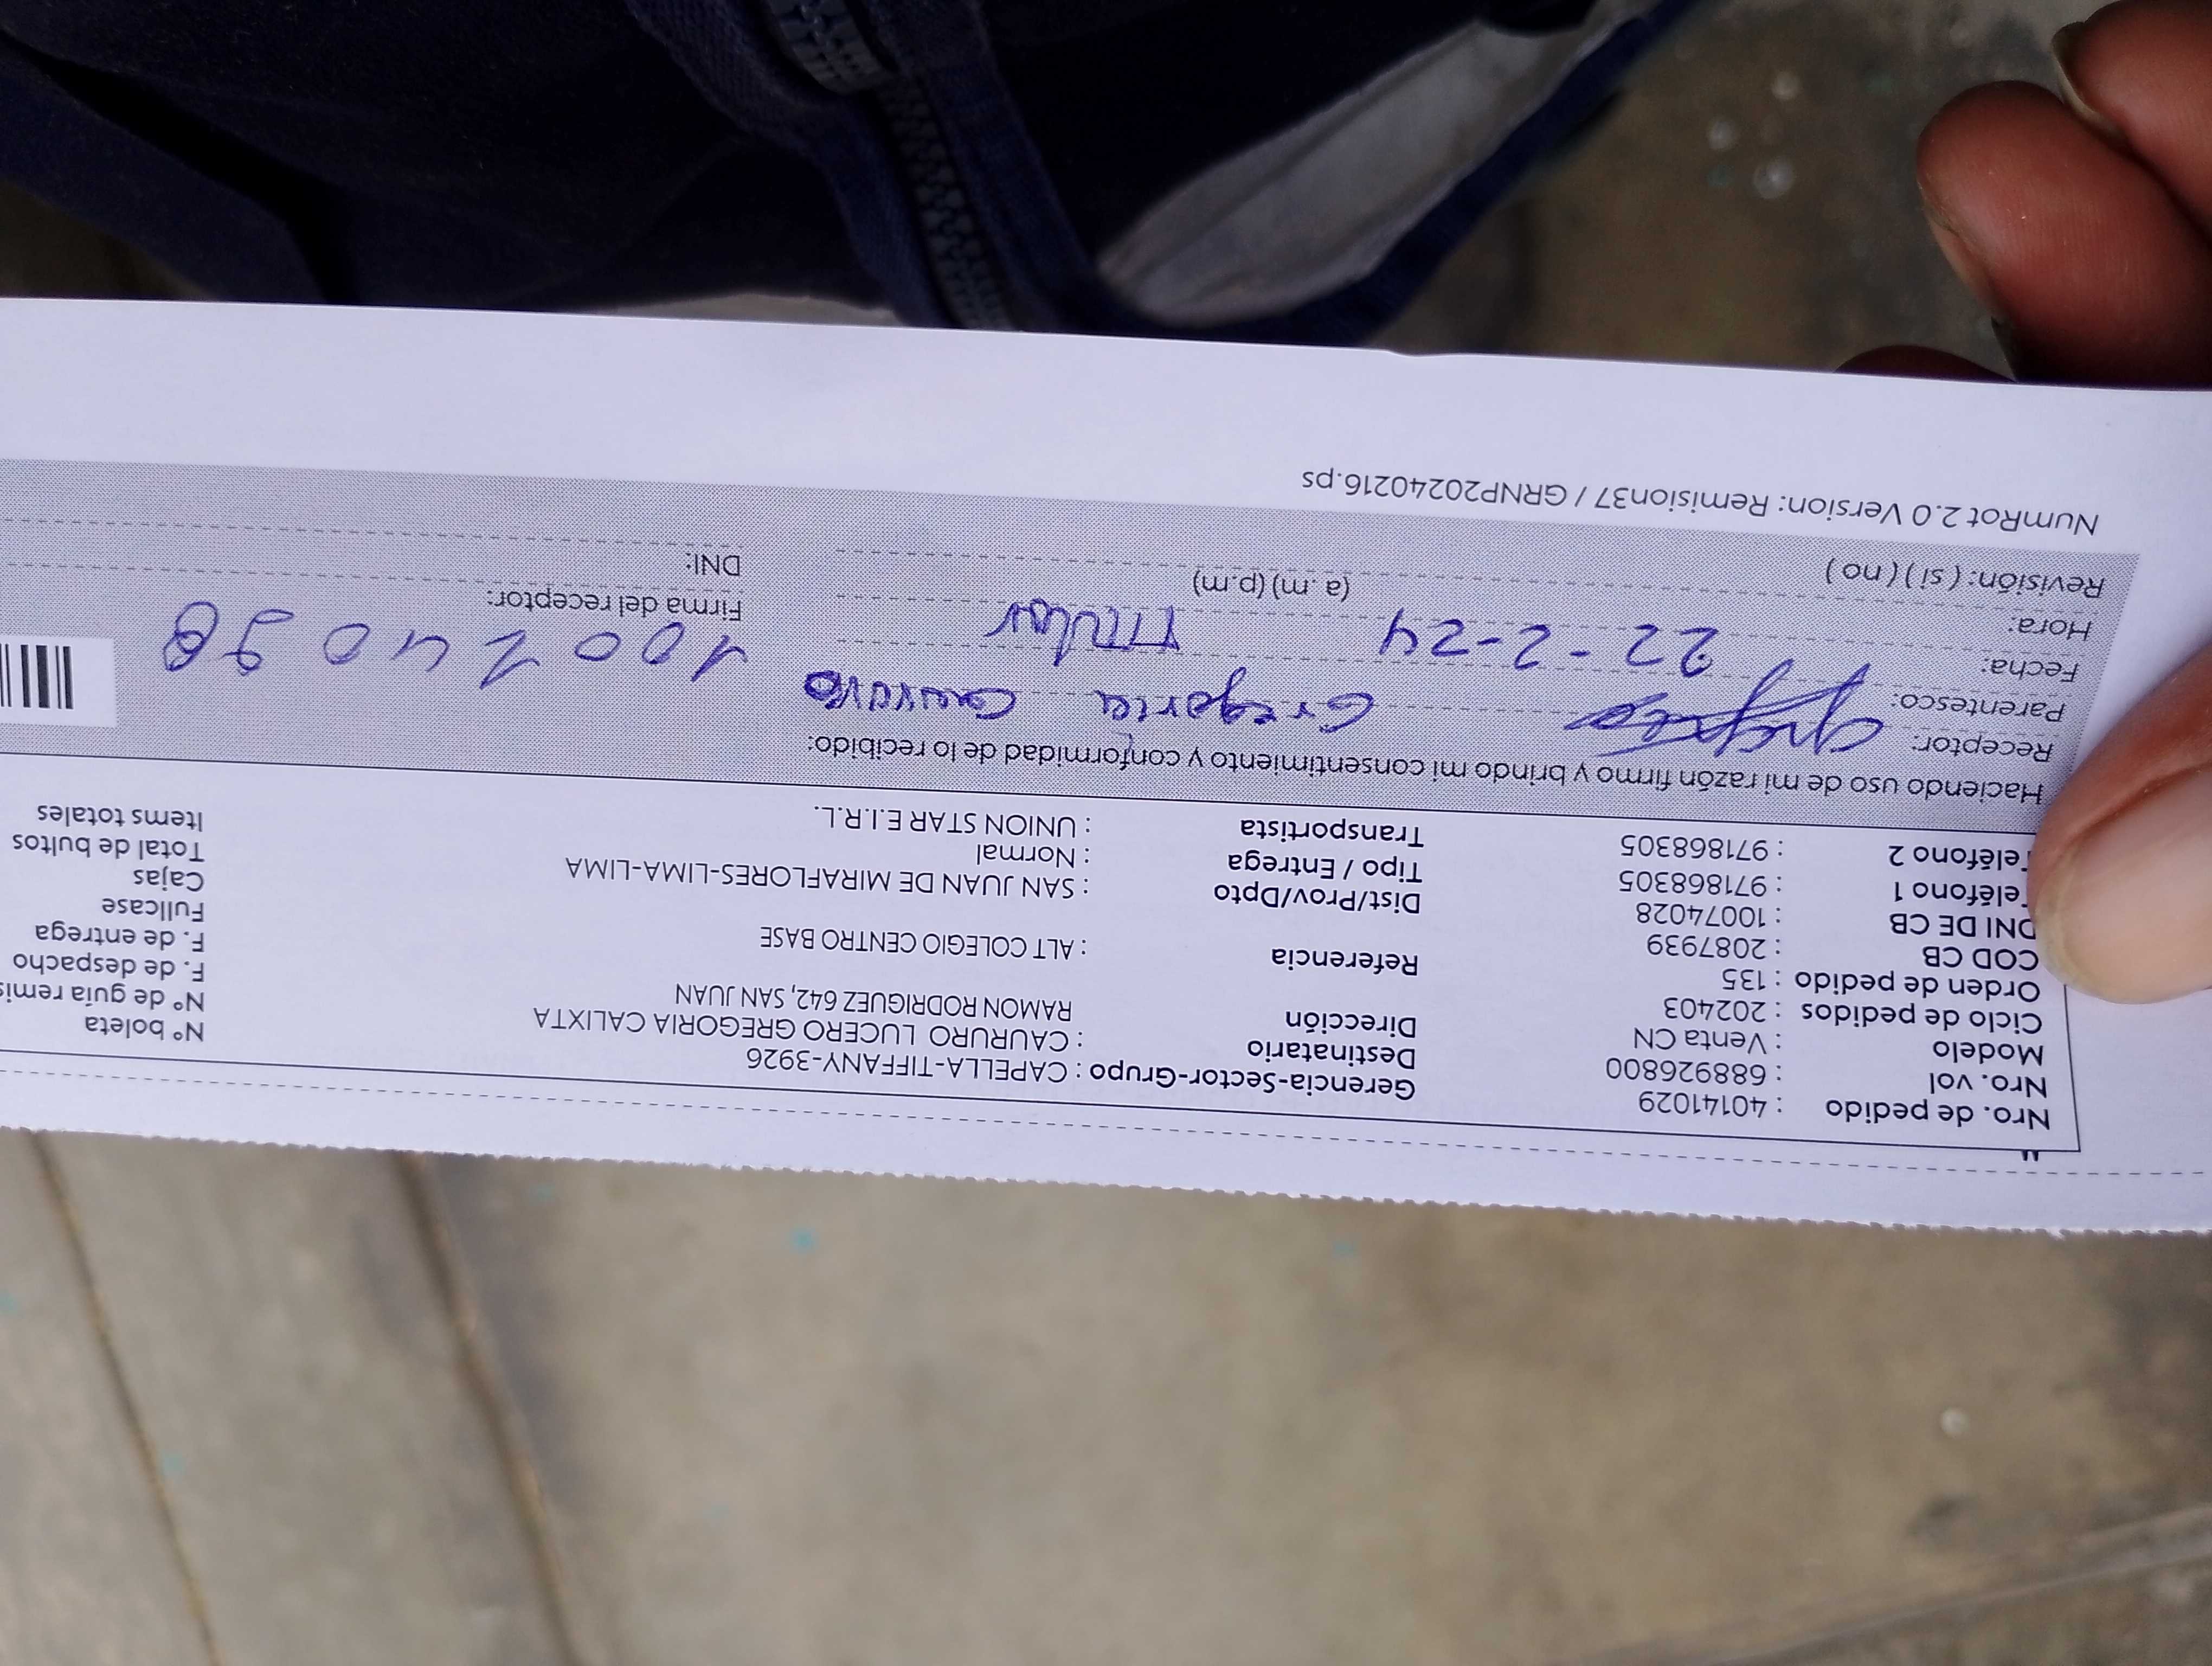 Nro. de pedido : 40141029 Gerencia-Sector-Grupo : CAPELLA-TIFFANY-3926 N° boleta
Nro. vol : 688926800 Destinatario : CAURURO LUCERO GREGORIA CALIXTA N° de guía remis
Modelo : Venta CN Dirección RAMON RODRIGUEZ 642, SAN JUAN F. de despacho
Ciclo de pedidos : 202403 F. de entrega
Orden de pedido : 135 Referencia : ALT COLEGIO CENTRO BASE Fullcase
COD CB : 2087939 Cajas
DNI DE CB : 10074028 Dist/Prov/Dpto : SAN JUAN DE MIRAFLORES-LIMA-LIMA Total de bultos
Teléfono 1 : 971868305 Tipo / Entrega : Normal Items totales
Teléfono 2 : 971868305 Transportista : UNION STAR E.I.R.L.
Haciendo uso de mi razón firmo y brindo mi consentimiento y conformidad de lo recibido:
Receptor: Gregoria Caururo
Parentesco: Titular
Fecha: 22-2-24
Hora: (a.m) (p.m) Firma del receptor:
Revisión: ( si ) ( no ) DNI:
NumRot 2.0 Version: Remision37 / GRNP20240216.ps